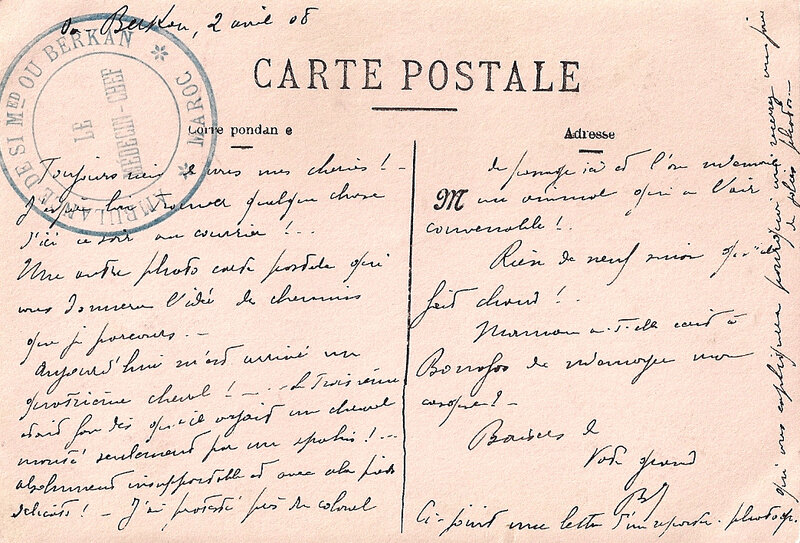 Berkan, 2 avril 08
AMBULANCE DE SI MED OU BERKAN
MAROC
LE
MÉDECIN-CHEF
CARTE POSTALE
Corre pondan e
Adresse
Toujours rien de vous mes chéries ! -
J'espère bien trouver quelque chose
d'ici ce soir au courrier ! ...
Une autre photo carte postale qui
vous donnera l'idée de chemins
que je parcours. -
Aujourd'hui m'est arrivé un
quatrième cheval ! - ... Le troisième
était fou dès qu'il voyait un cheval
monté seulement par un spahis ! ...
absolument insupportable et avec cela pieds
délicats ! - J'ai protesté près du colonel
de passage ici et l'on m'envoie
M un animal qui a l'air
convenable ! .
Rien de neuf sinon qu'il
fait chaud ! .
Maman a-t-elle écrit à
de m'envoyer mon
casque ? -
Baisers de
Votre grand
Ci-joint une lettre d'un reporter-photogr.
qui vous expliquera pourquoi vous n'aurez
de plus photos. -